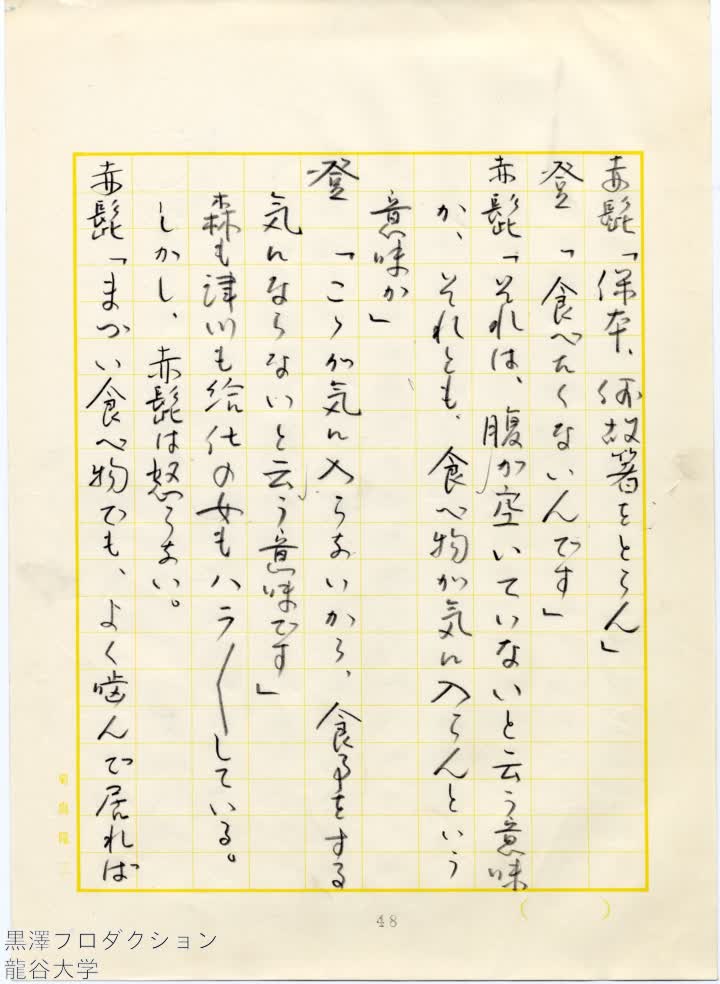 赤髭「保本、何故箸をとらん」
登　「食べたくないんです」
赤髭「それは、腹が空いていないと云う意味
か、それとも、食べ物が気に入らんという
意味か」
登　「こゝが気に入らないから、食事をする
気にならないと云う意味です」
森も津川も給仕の女もハラ〱している。
しかし、赤髭は怒らない。
赤髭「まづい食べ物でも、よく噛んで居れば
48
黒澤プロダクション
龍谷大学